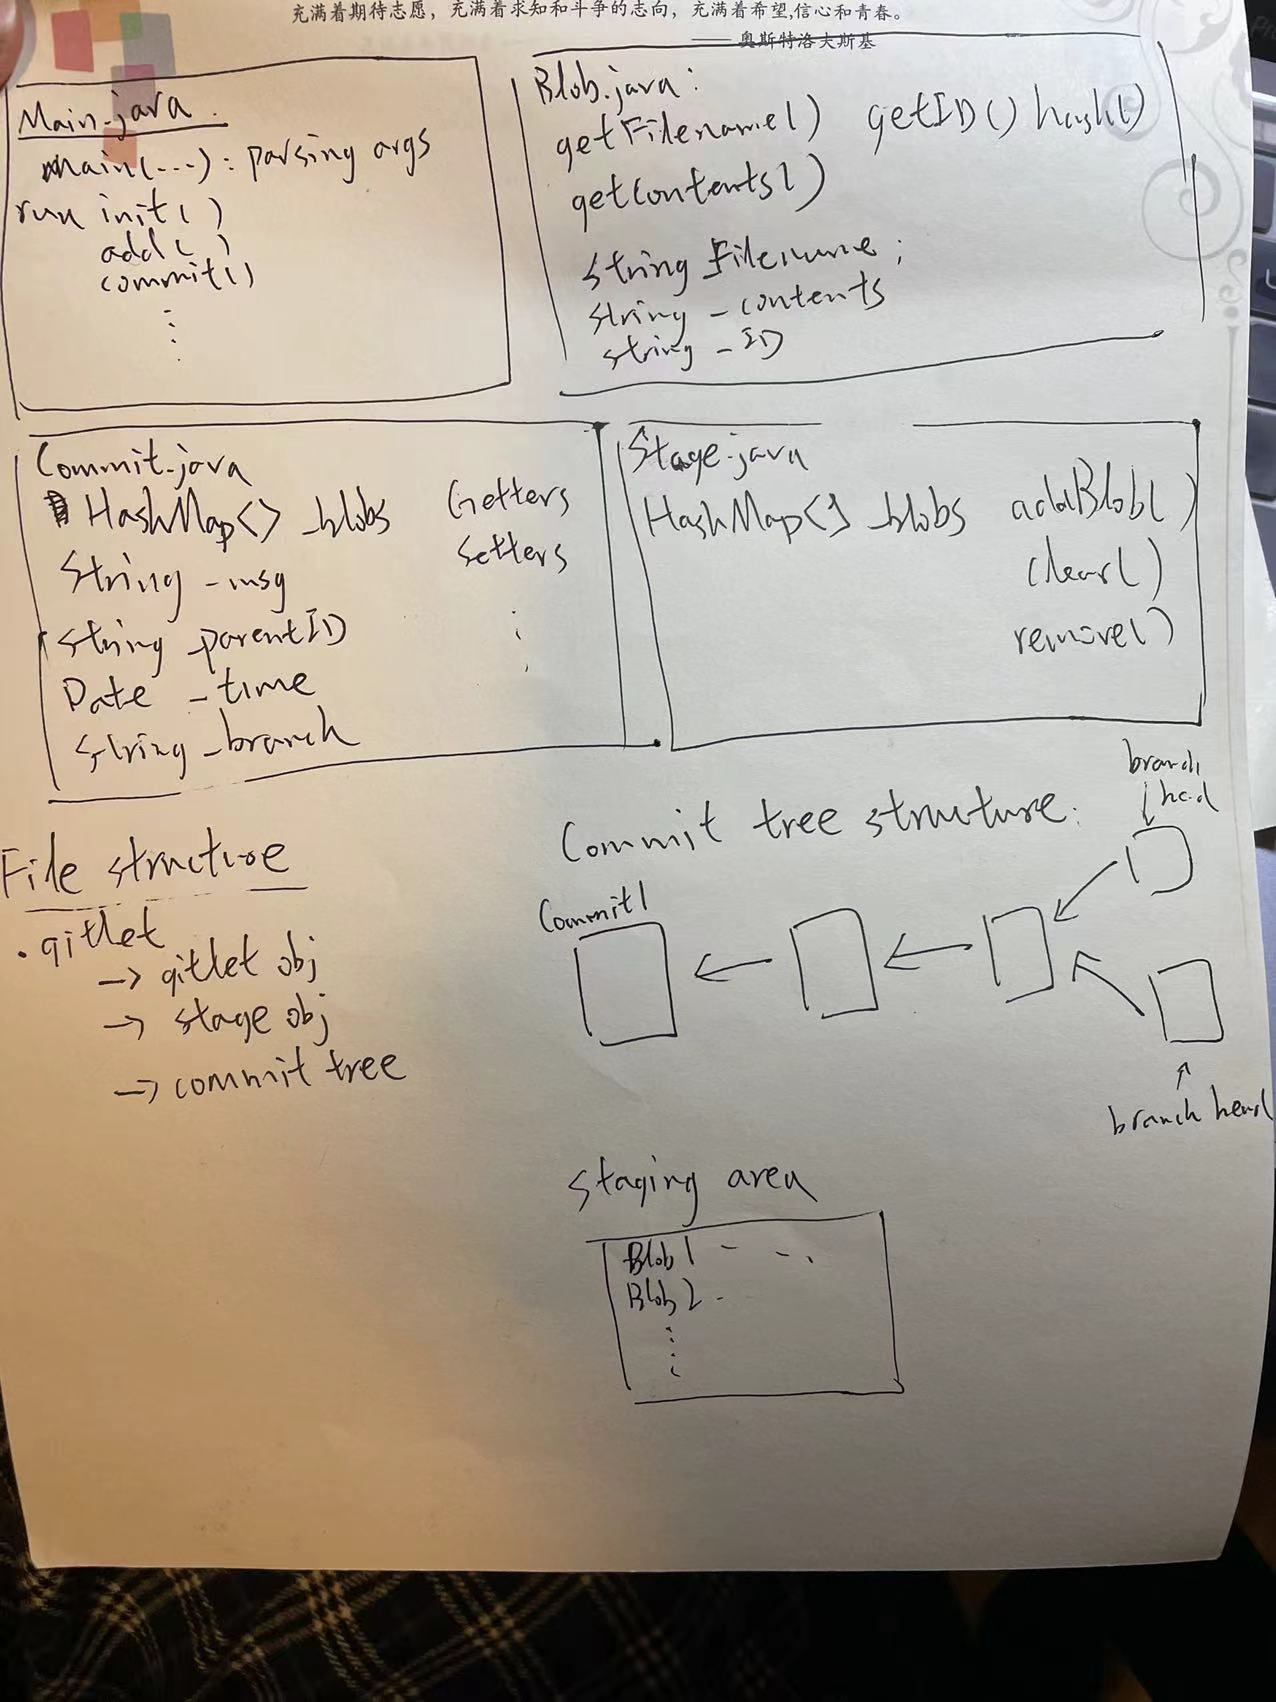 充满着期待志愿，充满着求知和斗争的志向，充满着希望,信心和青春。
—— 奥斯特洛夫斯基
Main.java
main(...): parsing args
run init()
add()
commit()
Blob.java:
getFilename() getID() hash()
getContents()
String Filename;
String _contents
String _ID
Commit.java
HashMap<> _blobs Getters
String _msg Setters
String _parentID
Date _time
String _branch
Stage.java
HashMap<> _blobs addBlob()
clear()
remove()
File structure
.gitlet
→ gitlet obj
→ stage obj
→ commit tree
Commit tree structure:
branch
head
Commit1
branch head
Staging area
Blob1 - - .
Blob2 -